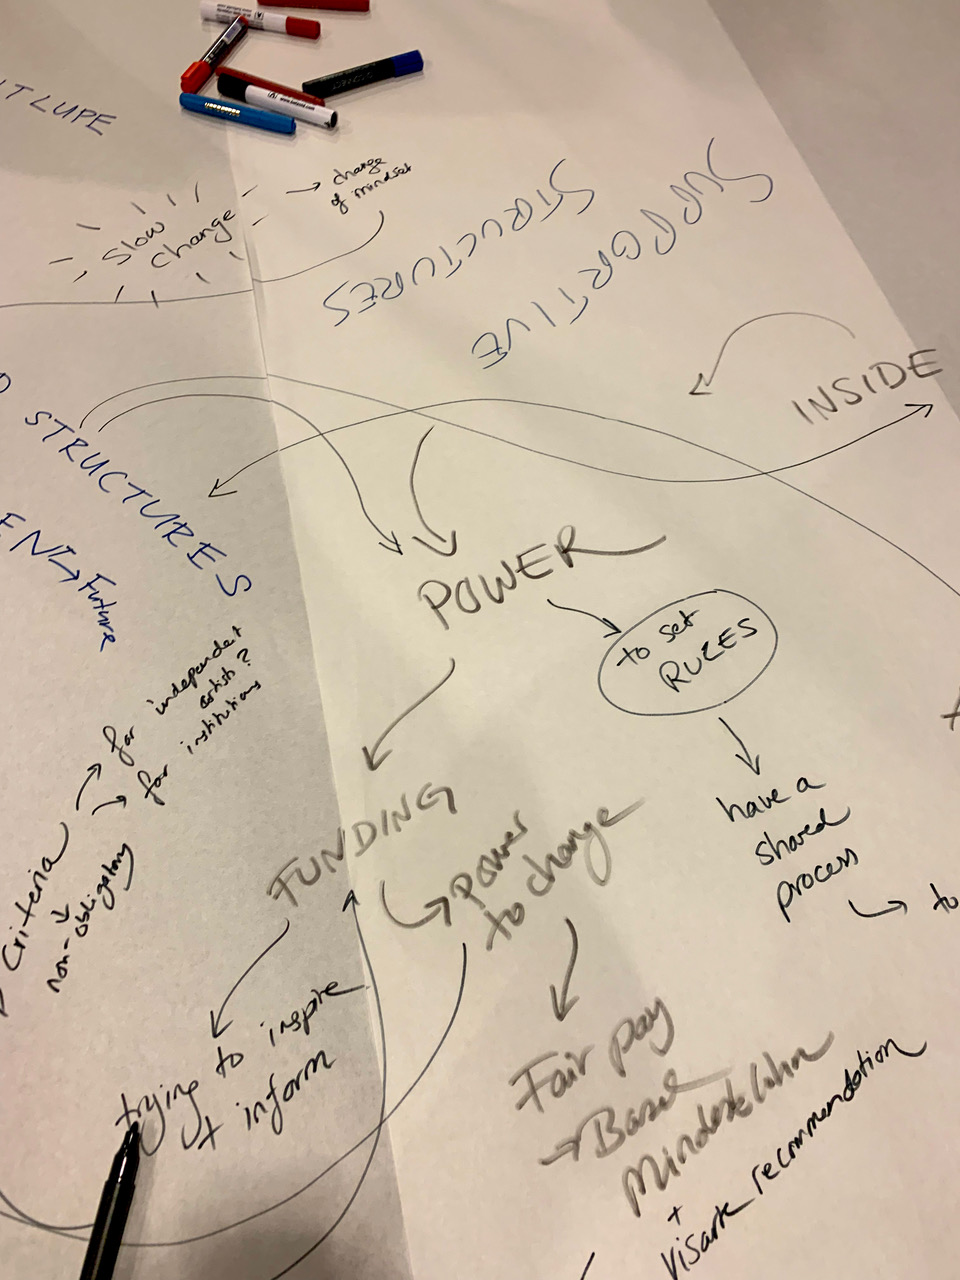 TLUPE
change
of mindset
Slow
change
SUPPORTIVE
STRUCTURES
INSIDE
STRUCTURES
EN → Future
POWER
to set
RULES
for independent
artists?
for institutions
have a
shared
process
to
FUNDING
power
to change
criteria
non-obligatory
trying to inspire
+ inform
Fair pay
→ Basel
Mindestlohn
+
visarte recommendation